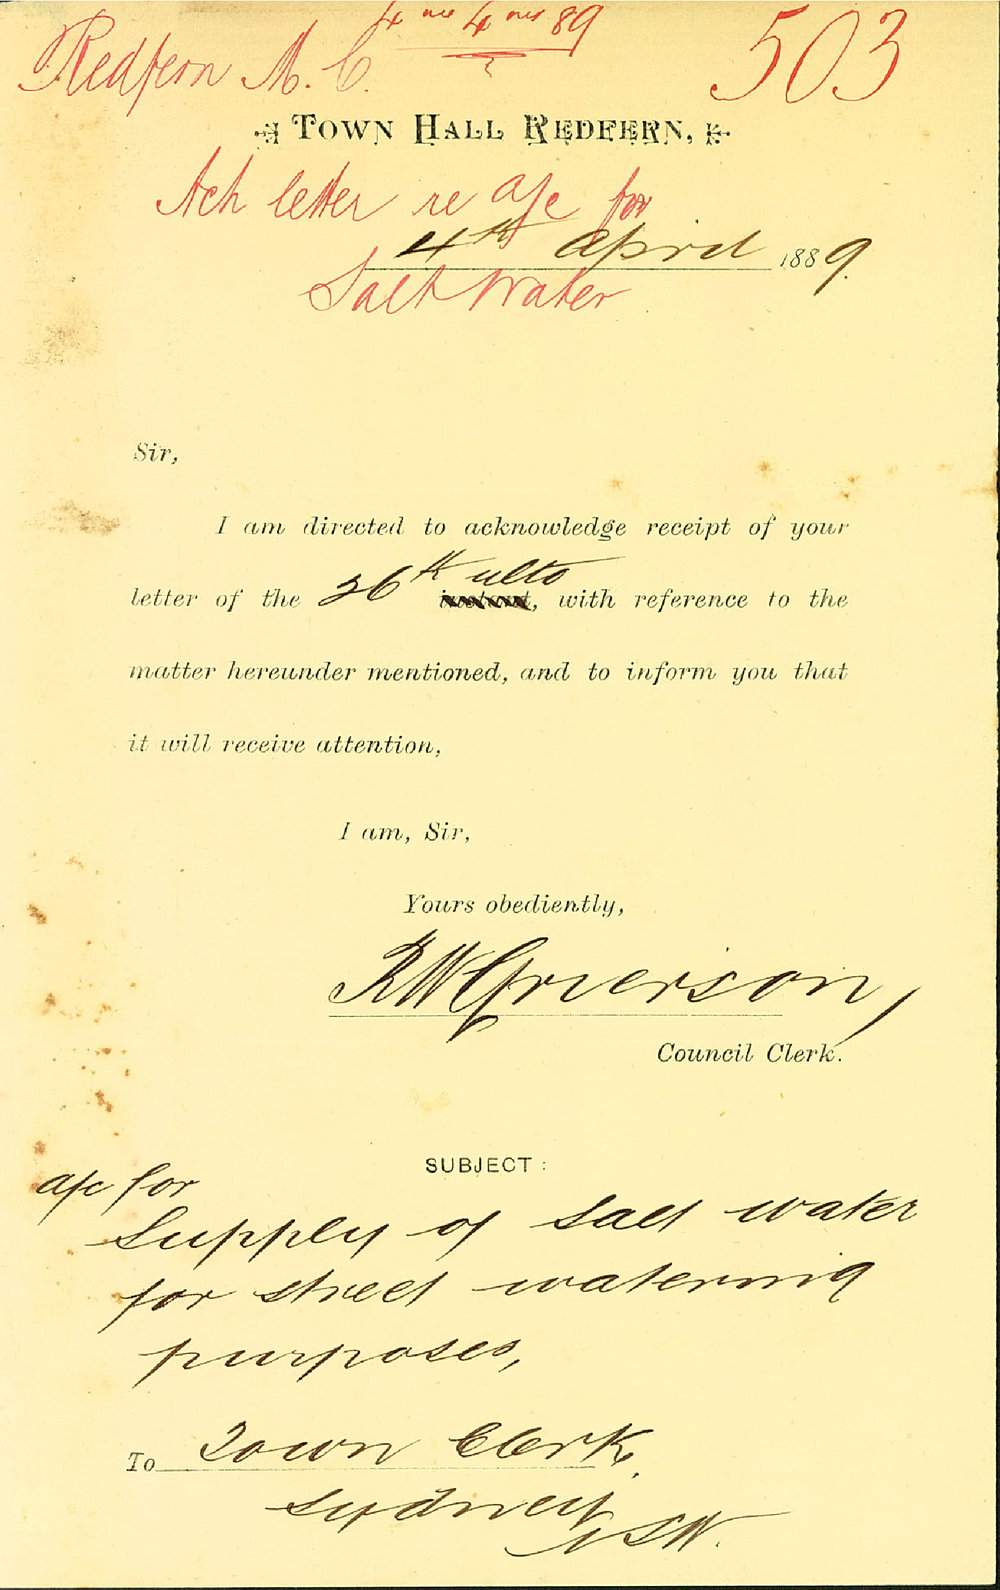 Redfern M. C. 4 mo 4 89
503
TOWN HALL REDFERN,
Ack letter re a/c for
4th April 1889.
Salt Water
Sir,
I am directed to acknowledge receipt of your
letter of the 26th ulto instant, with reference to the
matter hereunder mentioned, and to inform you that
it will receive attention,
I am, Sir,
Yours obediently,
RW Grierson,
Council Clerk.
SUBJECT:
a/c for
Supply of Salt water
for street watering
purposes,
To Town Clerk,
Sydney
NSW.